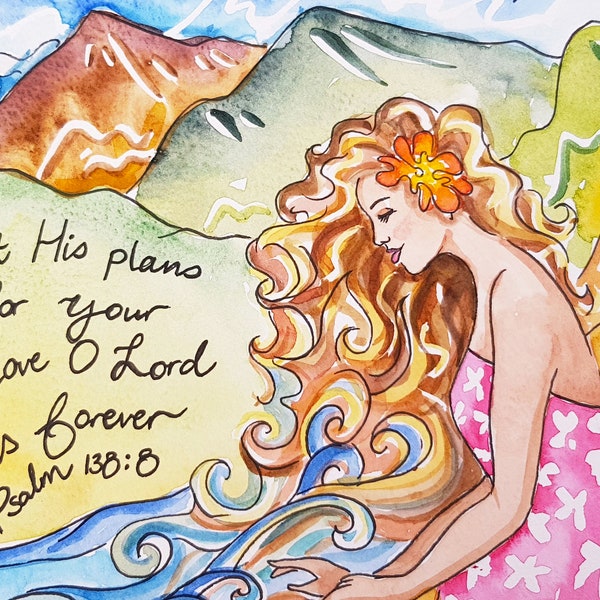 His plans
for your
Love O Lord
is forever
Psalm 138:8